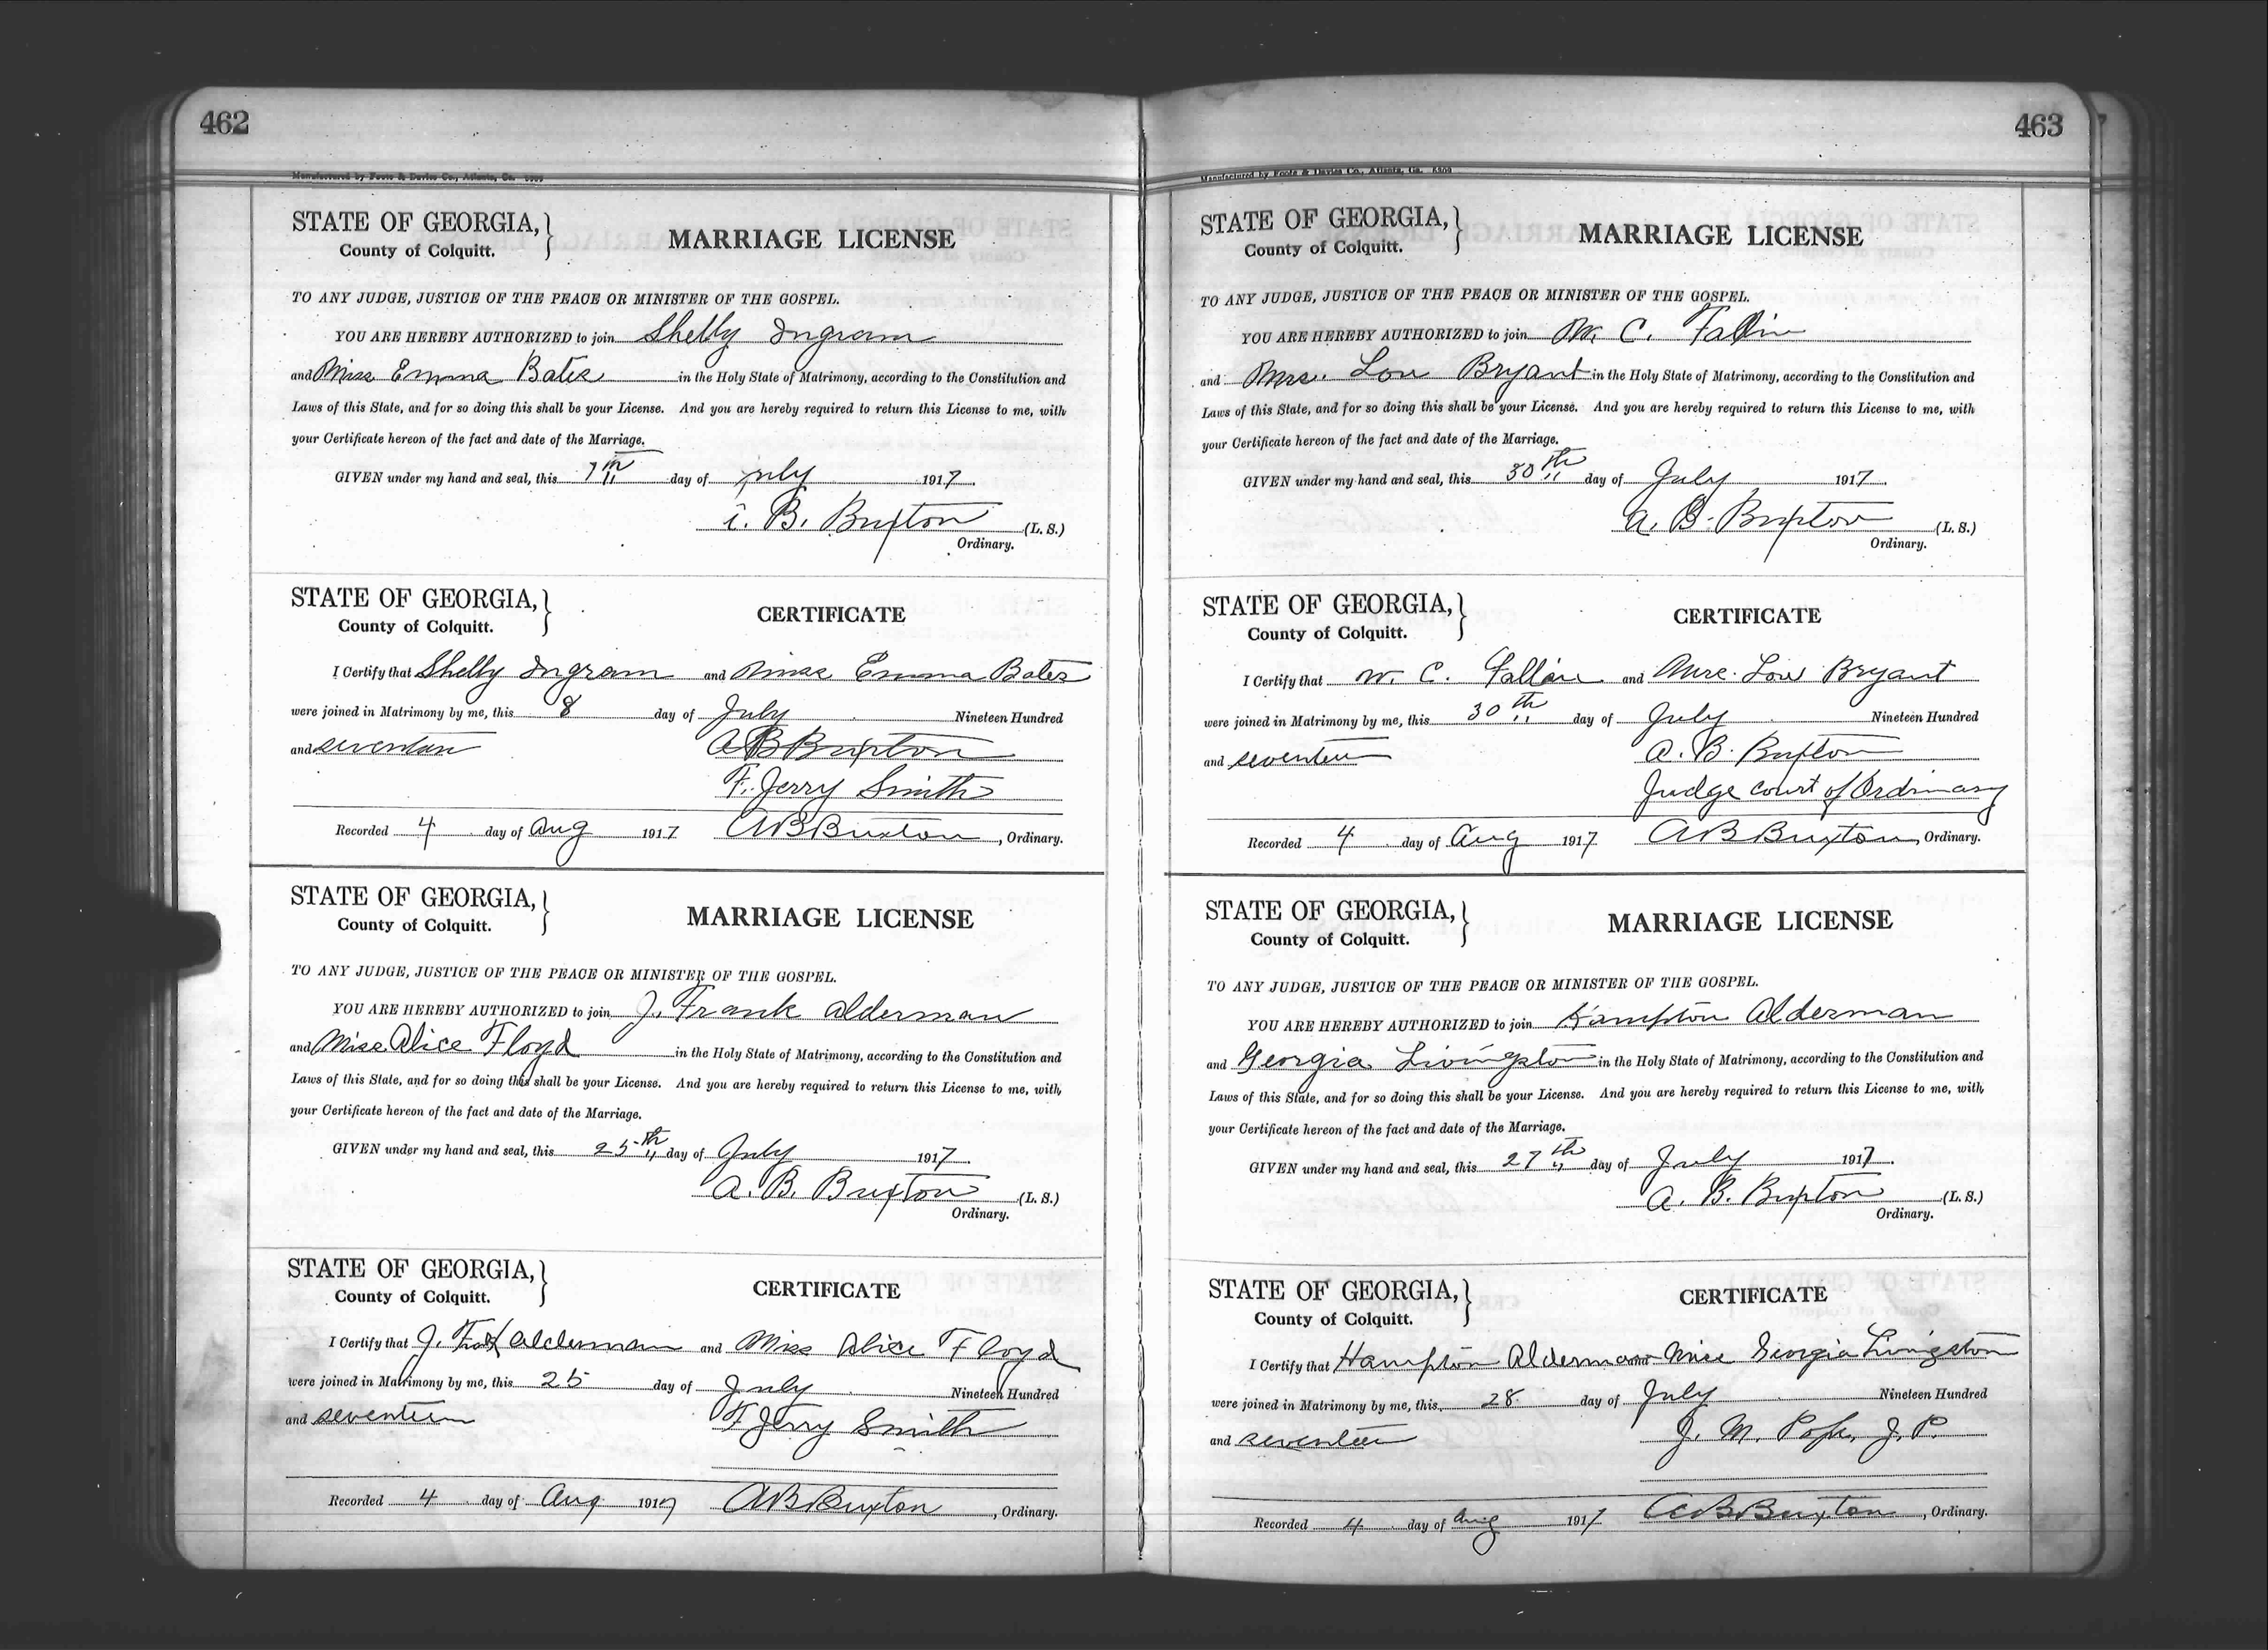 462
Manufactured by Foote & Davies Co., Atlanta, Ga.
STATE OF GEORGIA,
County of Colquitt.
MARRIAGE LICENSE
TO ANY JUDGE, JUSTICE OF THE PEACE OR MINISTER OF THE GOSPEL.
YOU ARE HEREBY AUTHORIZED to join Shelly Ingram
and Miss Emma Bates in the Holy State of Matrimony, according to the Constitution and
Laws of this State, and for so doing this shall be your License. And you are hereby required to return this License to me, with
your Certificate hereon of the fact and date of the Marriage.
GIVEN under my hand and seal, this 7th day of July 1917.
B. Buxton (L. S.)
Ordinary.
STATE OF GEORGIA,
County of Colquitt.
CERTIFICATE
I Certify that Shelly Ingram and Miss Emma Bates
were joined in Matrimony by me, this 8 day of July Nineteen Hundred
and seventeen A B Buxton
F. Jerry Smith
Recorded 4 day of Aug 1917 A B Buxton, Ordinary.
STATE OF GEORGIA,
County of Colquitt.
MARRIAGE LICENSE
TO ANY JUDGE, JUSTICE OF THE PEACE OR MINISTER OF THE GOSPEL.
YOU ARE HEREBY AUTHORIZED to join J. Frank Alderman
and Miss Alice Floyd in the Holy State of Matrimony, according to the Constitution and
Laws of this State, and for so doing this shall be your License. And you are hereby required to return this License to me, with,
your Certificate hereon of the fact and date of the Marriage.
GIVEN under my hand and seal, this 25th day of July 1917.
A. B. Buxton (L. S.)
Ordinary.
STATE OF GEORGIA,
County of Colquitt.
CERTIFICATE
I Certify that J. Alderman and Miss Alice Floyd
were joined in Matrimony by me, this 25 day of July Nineteen Hundred
and seventeen F Jerry Smith
Recorded 4 day of Aug 1917 A B Buxton, Ordinary.
463
Manufactured by Foote & Davies Co., Atlanta, Ga. 5309
STATE OF GEORGIA,
County of Colquitt.
MARRIAGE LICENSE
TO ANY JUDGE, JUSTICE OF THE PEACE OR MINISTER OF THE GOSPEL.
YOU ARE HEREBY AUTHORIZED to join W. C. Fallin
and Mrs. Lou Bryant in the Holy State of Matrimony, according to the Constitution and
Laws of this State, and for so doing this shall be your License. And you are hereby required to return this License to me, with
your Certificate hereon of the fact and date of the Marriage.
GIVEN under my hand and seal, this 30th day of July 1917.
A. B. Buxton (L. S.)
Ordinary.
STATE OF GEORGIA,
County of Colquitt.
CERTIFICATE
I Certify that W. C. Fallin and Mrs. Lou Bryant
were joined in Matrimony by me, this 30th day of July Nineteen Hundred
and seventeen A. B. Buxton
Judge court of Ordinary
Recorded 4 day of Aug 1917 A B Buxton, Ordinary.
STATE OF GEORGIA,
County of Colquitt.
MARRIAGE LICENSE
TO ANY JUDGE, JUSTICE OF THE PEACE OR MINISTER OF THE GOSPEL.
YOU ARE HEREBY AUTHORIZED to join Hampton Alderman
and Georgia Livingston in the Holy State of Matrimony, according to the Constitution and
Laws of this State, and for so doing this shall be your License. And you are hereby required to return this License to me, with,
your Certificate hereon of the fact and date of the Marriage.
GIVEN under my hand and seal, this 27th day of July 1917.
A. B. Buxton (L. S.)
Ordinary.
STATE OF GEORGIA,
County of Colquitt.
CERTIFICATE
I Certify that Hampton Alderman and Miss Georgia Livingston
were joined in Matrimony by me, this 28 day of July Nineteen Hundred
and seventeen J. M. Pope, J. P.
Recorded 4 day of Aug 1917 A B Buxton, Ordinary.